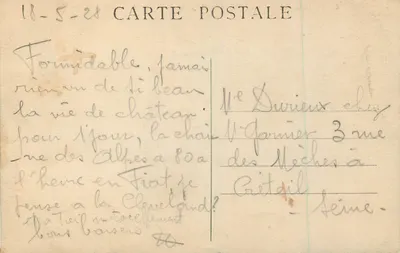 18-5-28
CARTE POSTALE
Formidable, jamais
rien vu de si beau
la vie de château
pour 1 jour, la chaî
-ne des Alpes a 80 a
l'heure en Fiat je
pense a la Cleveland?
bons baisers
Me Durieux chez
Mr Garnier 3 rue
des Mèches à
Créteil
Seine-